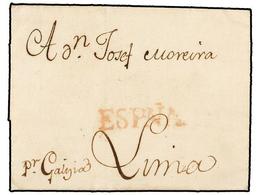 A dn. Josef Moreira
ESPÑA.
pr. Galizia Lima